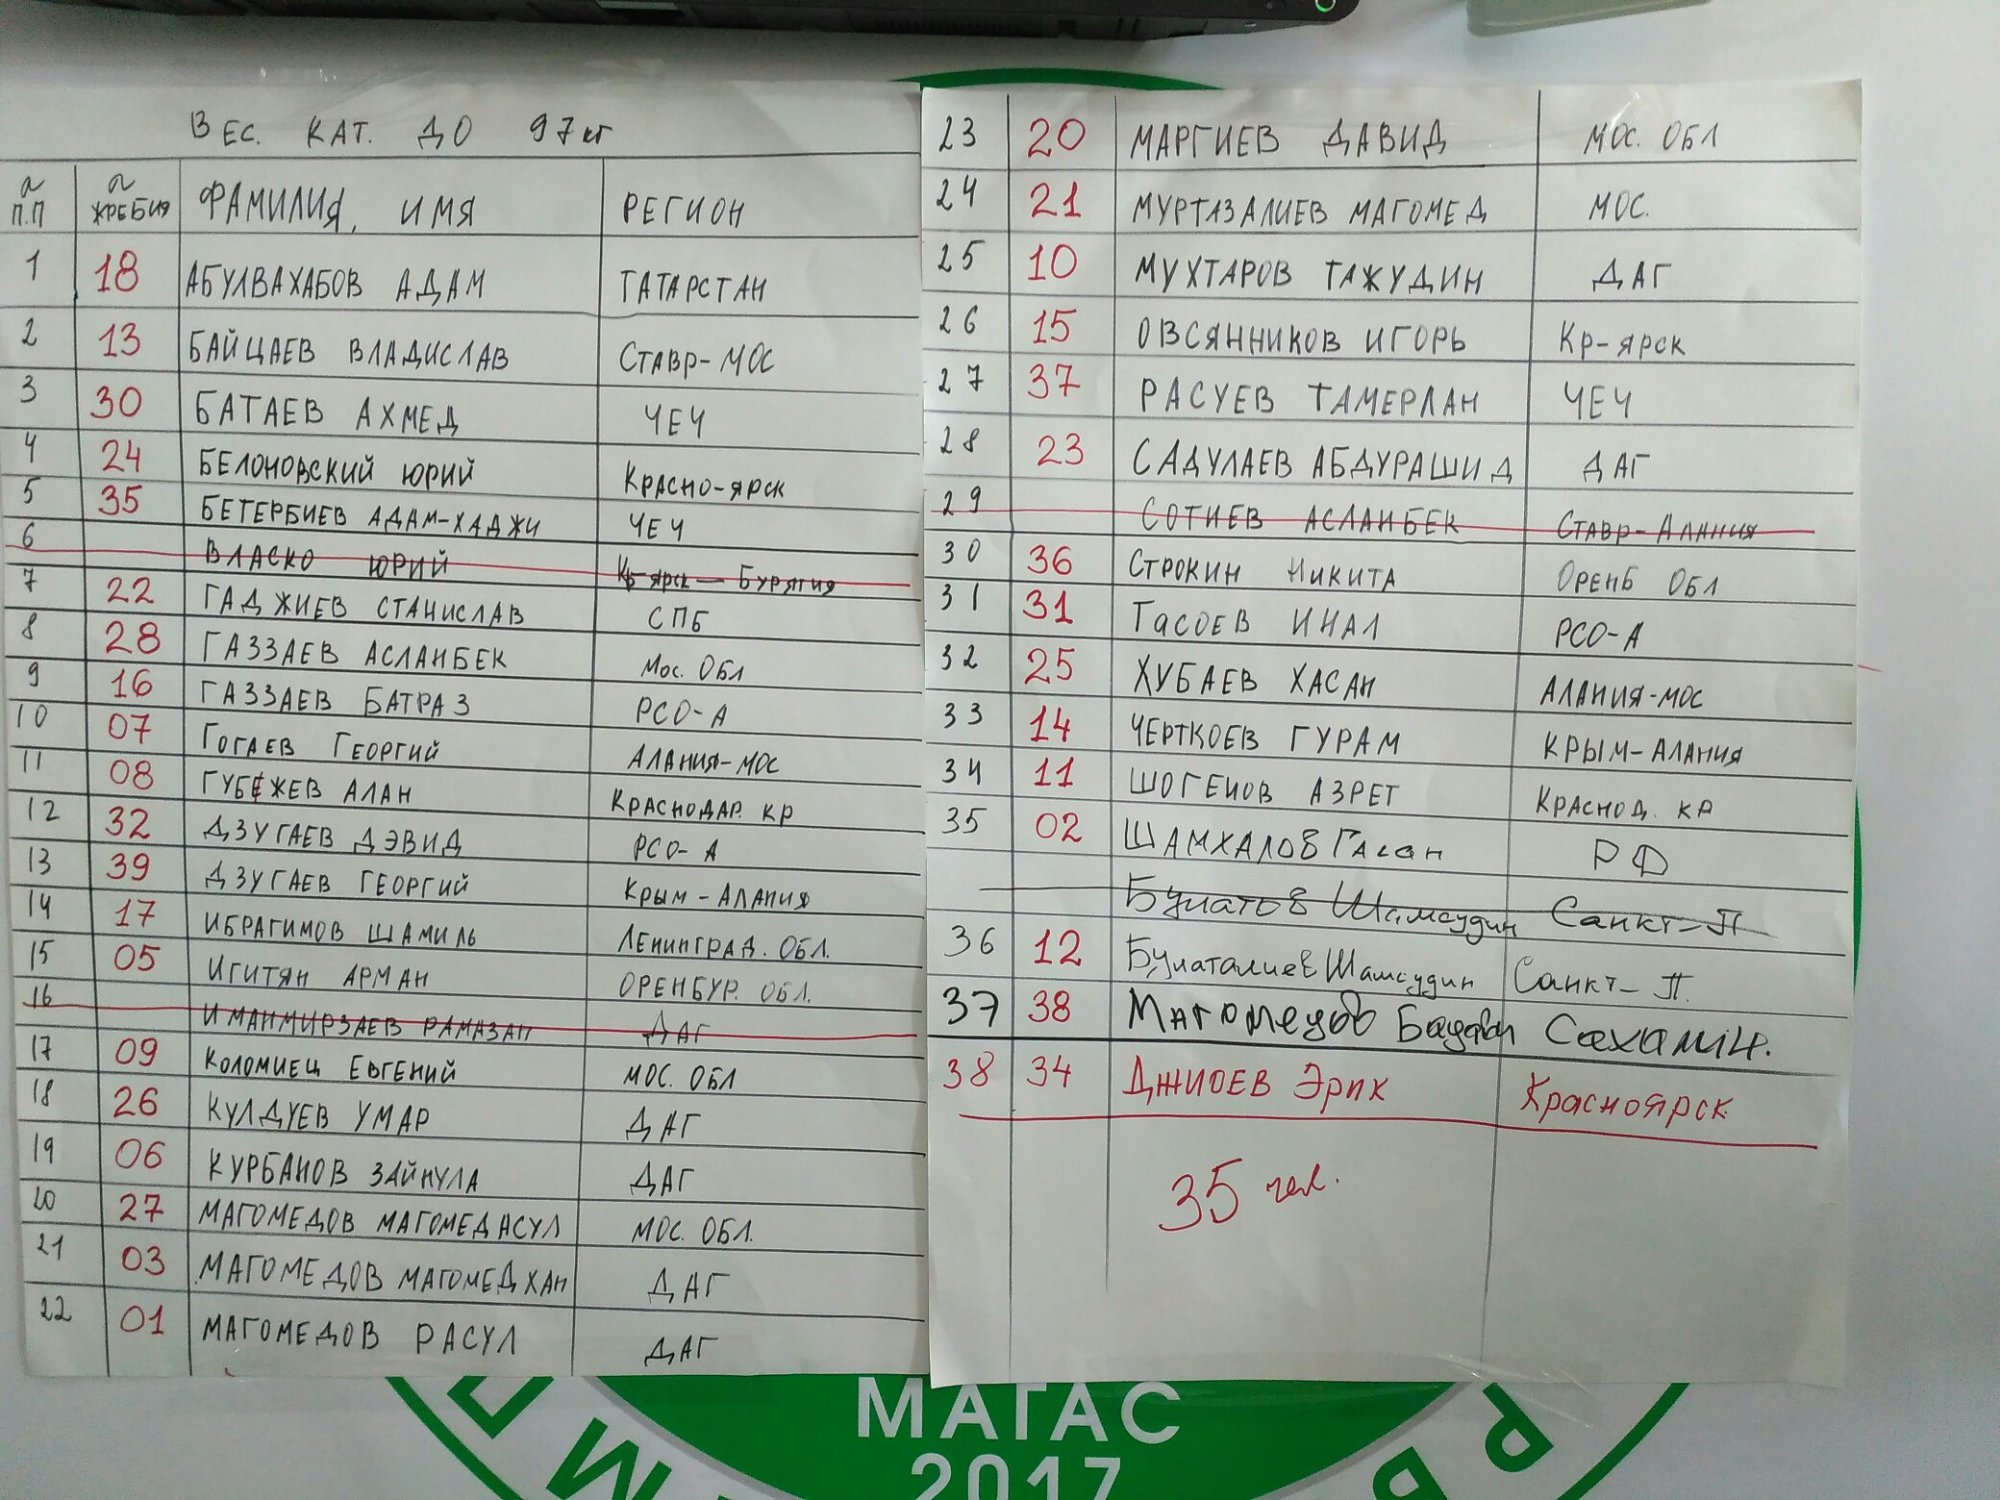 ВЕС. КАТ. ДО 97кг
№ П.П № ЖРЕБИЯ ФАМИЛИЯ, ИМЯ РЕГИОН
1 18 АБУЛВАХАБОВ АДАМ ТАТАРСТАН
2 13 БАЙЦАЕВ ВЛАДИСЛАВ СТАВР-МОС
3 30 БАТАЕВ АХМЕД ЧЕЧ
4 24 БЕЛОНОВСКИЙ ЮРИЙ КРАСНО-ЯРСК
5 35 БЕТЕРБИЕВ АДАМ-ХАДЖИ ЧЕЧ
6 ВЛАСКО ЮРИЙ КР-ЯРСК-БУРЯТИЯ
7 22 ГАДЖИЕВ СТАНИСЛАВ СПБ
8 28 ГАЗЗАЕВ АСЛАНБЕК МОС. ОБЛ
9 16 ГАЗЗАЕВ БАТРАЗ РСО-А
10 07 ГОГАЕВ ГЕОРГИЙ АЛАНИЯ-МОС
11 08 ГУБЖЕВ АЛАН КРАСНОДАР. КР
12 32 ДЗУГАЕВ ДЭВИД РСО-А
13 39 ДЗУГАЕВ ГЕОРГИЙ КРЫМ-АЛАНИЯ
14 17 ИБРАГИМОВ ШАМИЛЬ ЛЕНИНГРАД. ОБЛ.
15 05 ИГИТЯН АРМАН ОРЕНБУР. ОБЛ.
16 ИМАНМИРЗАЕВ РАМАЗАН ДАГ
17 09 КОЛОМИЕЦ ЕВГЕНИЙ МОС. ОБЛ
18 26 КУЛДУЕВ УМАР ДАГ
19 06 КУРБАНОВ ЗАЙНУЛА ДАГ
20 27 МАГОМЕДОВ МАГОМЕДАСУЛ МОС. ОБЛ.
21 03 МАГОМЕДОВ МАГОМЕДХАН ДАГ
22 01 МАГОМЕДОВ РАСУЛ ДАГ
23 20 МАРГИЕВ ДАВИД МОС. ОБЛ
24 21 МУРТАЗАЛИЕВ МАГОМЕД МОС.
25 10 МУХТАРОВ ТАЖУДИН ДАГ
26 15 ОВСЯННИКОВ ИГОРЬ КР-ЯРСК
27 37 РАСУЕВ ТАМЕРЛАН ЧЕЧ
28 23 САДУЛАЕВ АБДУРАШИД ДАГ
29 СОТИЕВ АСЛАНБЕК СТАВР-АЛАНИЯ
30 36 СТРОКИН НИКИТА ОРЕНБ ОБЛ
31 31 ТАСОЕВ ИНАЛ РСО-А
32 25 ХУБАЕВ ХАСАН АЛАНИЯ-МОС
33 14 ЧЕРТКОЕВ ГУРАМ КРЫМ-АЛАНИЯ
34 11 ШОГЕНОВ АЗРЕТ КРАСНОД. КР
35 02 ШАМХАЛОВ Гасан РД
Булатов Шамсудин Санкт-П
36 12 Булаталиев Шамсудин Санкт-П.
37 38 Магомедов Сахалин.
38 34 ДЖИОЕВ ЭРИК Красноярск
35 чел.
МАГАС
2017